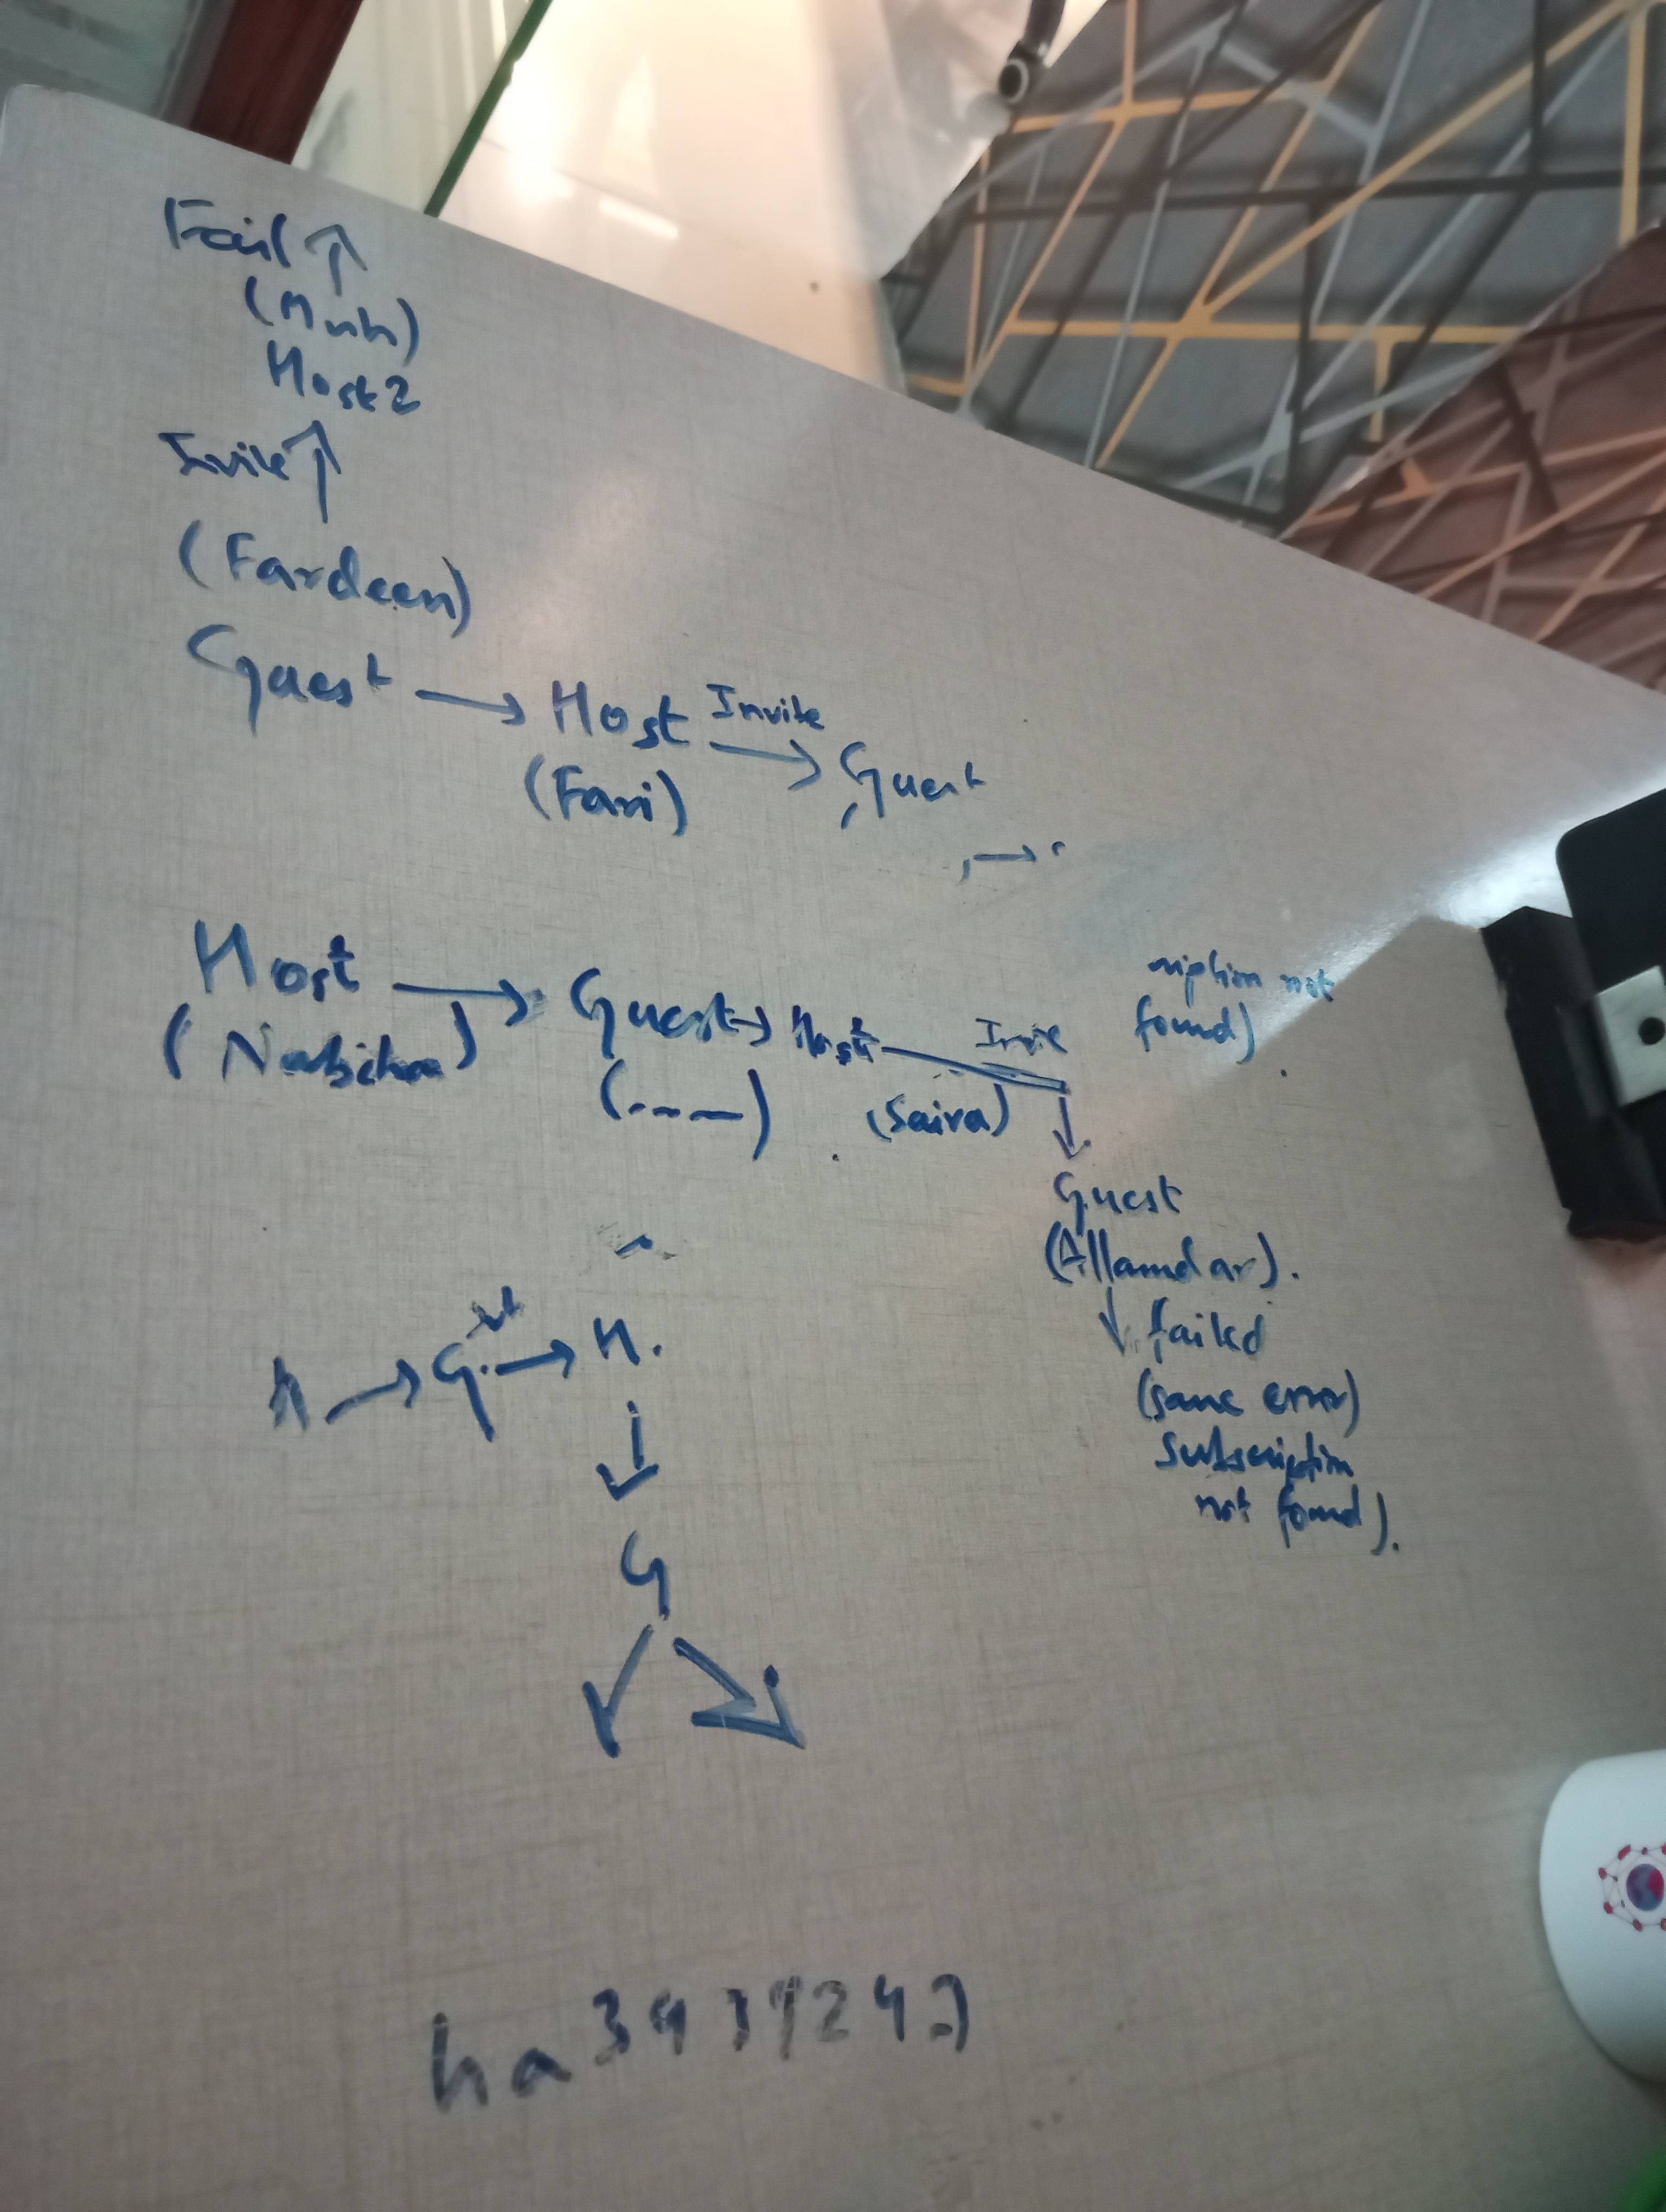 Fail ↑
Host2
Invite ↑
(Fardeen)
Guest → Host Invite → Guest
(Fari)
Host → Guest → Host Invite
(Nabiha) (----) (Saira)
ription not
found)
Guest
(Allamdar).
↓ failed
(same error)
subscription
not found).
H → G. → H.
↓
G
ha